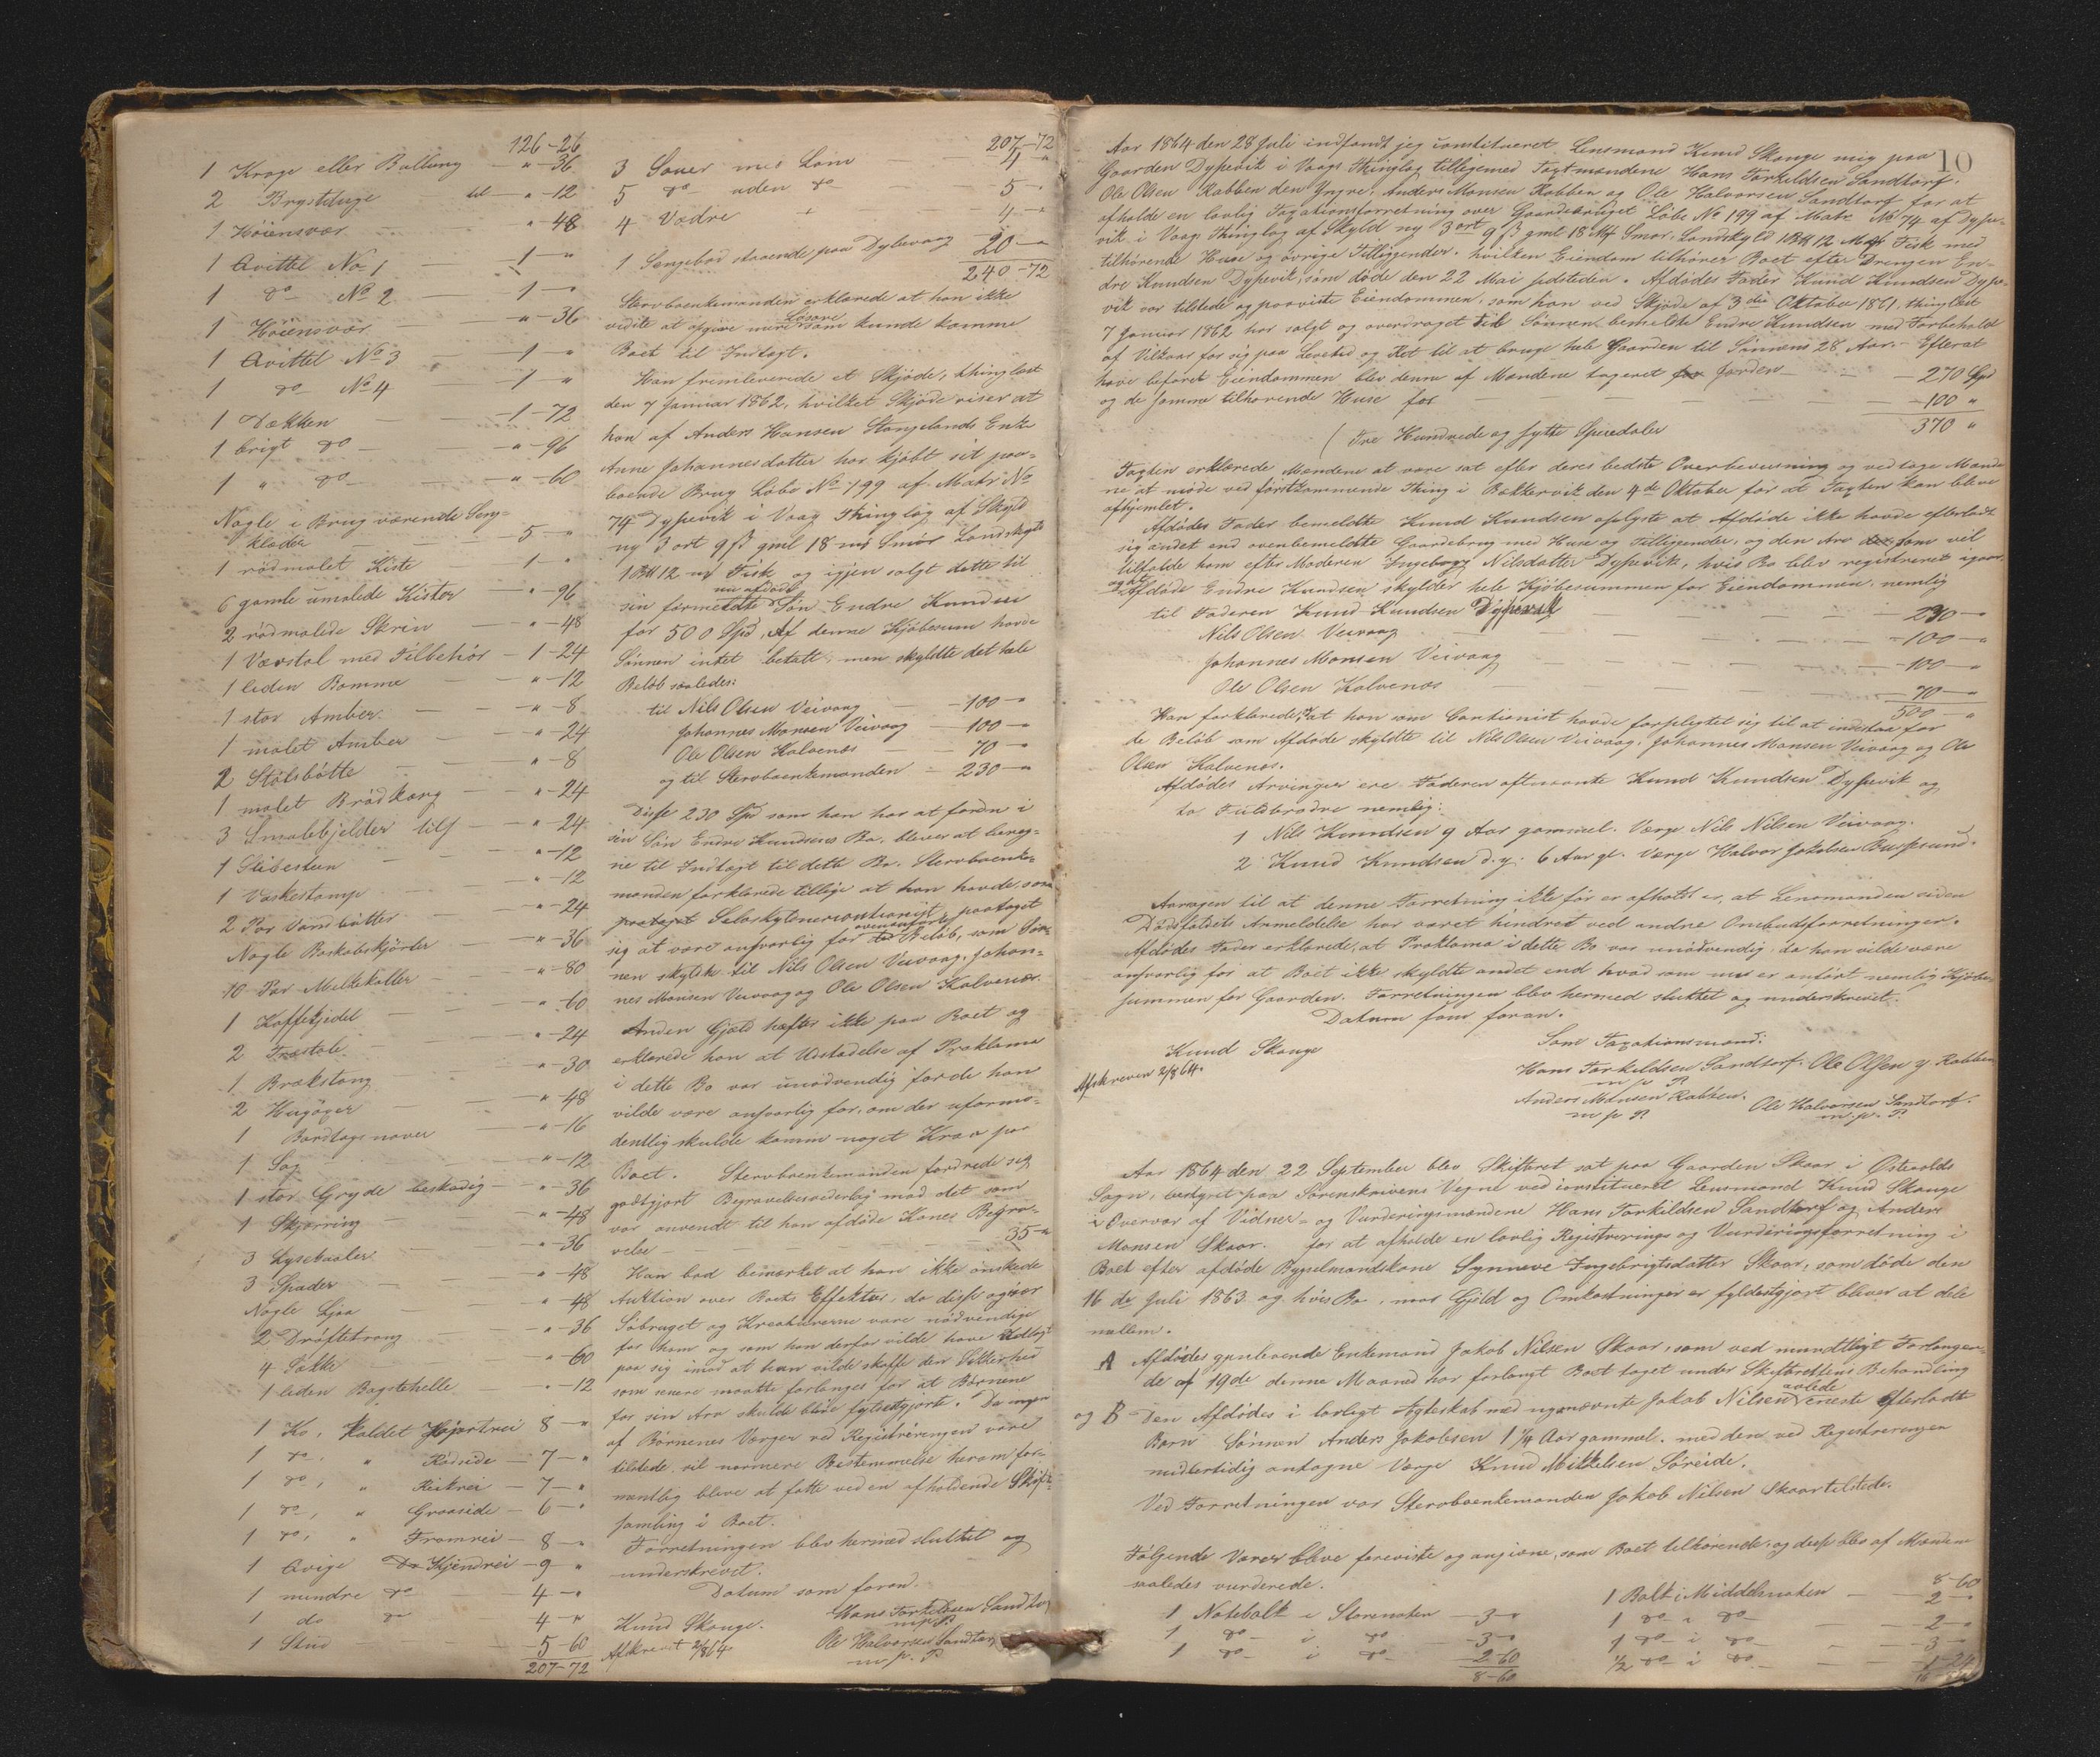 126-26
1 Krage eller Ballung " - 36
2 Brystduge til - " - 12
1 Höiensvær " - 48
1 Avittel No 1 - 1 - "
1 do No 2 - 1 - "
1 Höiensvær - " - 36
1 Avittel No 3 - 1 - "
1 do No 4 - 1 - "
1 Dækken - 1 - 72
1 brigt do - " - 96
1 " do - " - 60
Nogle i Brug værende Seng=
klæder - 5 - "
1 rödmalet Kiste - 1 - "
6 gamle umalede Kister - " - 96
2 rödmalede Skrin - " - 48
1 Vævstol med Tilbehör - 1 - 24
1 liden Bomme - " - 12
1 stor Amber - " - 8
1 malet Amber - " - 24
2 Stölsbötte - " - 8
1 malet Brödkorg - " - 24
3 Smalebjelder tils - " - 24
1 Slibesteen - " - 12
1 Vaskestamp - " - 12
2 Par Vandbötter - " - 24
Nogle Boskabskjörler - " - 36
10 Par Melkekoller - " - 80
1 Kaffekjedel - " - 60
2 Træstole - " - 24
1 Brækstang - " - 30
2 Hugöxer - " - 48
1 Bordtagsnaver - " - 16
1 Sag - " - 12
1 stor Gryde beskadig - " - 36
1 Skjæring - " - 48
3 Lysekaaler - " - 36
3 Spader - " - 48
Nogle Ljaa - " - 48
2 Dröftetroug - " - 36
4 Sække - " - 60
1 liden Bagstehelle - " - 12
1 Ko, kaldet Hjartrei 8 - "
1 do, " Rödside - 7 - "
1 do, " Reikrei - 7 - "
1 do, " Graaside - 6 - "
1 do, " Framrei - 8 - "
1 Qvige Do Kjendrei - 9 - "
1 mindre do - 4 - "
1 do do - 4 - "
1 Stud - 5-60
207-72
207-72
3 Sauer med Lam 4 - "
5 do uden do 5 - "
4 Vædre 4 - "
1 Sengebod staaende paa Dybevaag 20 - "
240-72
Stervboenkemanden erklærede at han ikke
vidste at opgive mere Lösöre som kunde komme
Boet til Indtægt.
Han fremleverede et Skjöde, thinglæst
den 7 Januar 1862, hvilket Skjöde viser at
han af Anders Hansen Stangelands Enke
Anne Johannesdatter har kjöbt sit paa=
boende Brug Löbe No 199 af Matr No
74 Dypevik i Vaag Thinglag af Skyld
ny 3 ort 9 ß gml 18 m# Smör Landskyld
1 B# 12 m# Fisk og igjen solgt dette til
sin formeldte nu afdöde Sön Endre Knudsen
for 500 Spd. Af denne Kjöbesum havde
Sönnen intet betalt, men skyldte det hele
Belöb saaledes:
til Nils Olsen Veivaag - 100 - "
Johannes Monsen Veivaag - 100 - "
Ole Olsen Kalvenæs - 70 - "
og til Stervboenkemanden - 230 - "
Disse 230 Spd som han har at fordre i
sin Sön Endre Knudsens Bo, bliver at bereg=
ne til Indtægt til dette Bo. Stervboenke=
manden forklarede tillige at han havde, som
paataget Selvskyldnercautionist, paataget
sig at være ansvarlig for ovenanförte Belöb, som Sön=
nen skyldte til Nils Olsen Veivaag, Johan=
nes Monsen Veivaag og Ole Olsen Kalvenæs.
Anden Gjæld hæfter ikke paa Boet og
erklærede han at Udstædelse af Proklama
i dette Bo var unödvendig fordi han
vilde være ansvarlig for, om der uformo=
dentlig skulde komme noget Krav paa
Boet. Stervboenkemanden fordrede sig
godtgjort Begravelsesvederlag mod det som
var anvendt til han afdöde Kones Begra=
velse - 35 - "
Han bad bemærket at han ikke önskede
Auktion over Boets Effekter, da disse ogsaa
Söbruget og Kreaturerne vare nödvendige
for ham og som han derfor vilde have Udlagt
paa sig imod at han vilde skaffe den Sikkerhed
som senere maatte forlanges for at Börnene
for sin Arv skulde blive fyldestgjorte. Da ingen
af Börnenes Værger ved Registreringen vare
tilstede, vil nærmere Bestemmelse herom for=
mentlig blive at fatte ved en afholdende Skifte=
samling i Boet.
Forretningen blev hermed sluttet og
underskrevet.
Datum som foran.
Knud Skouge. Hans Torkildsen Sandtor
m. p. P.
Afskrevet 2/8 64 Ole Halvorsen Sandtor
m. p. P
10
Aar 1864 den 28 Juli indfandt jeg constitueret Lensmand Knud Skouge mig paa
Gaarden Dypevik i Vaags Thinglag tilligemed Taxtmændene Hans Torkildsen Sandtorf,
Ole Olsen Rabben den Yngre, Anders Monsen Rabben og Ole Halvorsen Sandtorf for at
afholde en lovlig Taxationsforretning over Gaardebruget Löbe No 199 af Matr No 74 af Dype=
vik i Vaag Thinglag af Skyld ny 3 ort 9 ß gml 18 M# Smör, Landskyld 1 B# 12 M# Fisk med
tilhörende Huse og övrige Tilliggender, hvilken Eiendom tilhörer Boet efter Drengen En=
dre Knudsen Dypevik, som döde den 22 Mai sidstleden. Afdödes Fader Knud Knudsen Dype=
vik var tilstede og paaviste Eiendommen, som han ved Skjöde af 3die Oktober 1861, thinglæst
7 Januar 1862 har solgt og overdraget til Sönnen bemeldte Endre Knudsen med Forbehold
af Vilkaar for sig paa Levetid og Ret til at bruge hele Gaarden til Sönnens 28 Aar. - Efterat
have befaret Eiendommen blev denne af Mændene taxeret for Jorden - 270 Spd
og de samme tilhörende Huse for - 100 "
370 "
( Tre Hundrede og sytti Speciedaler
Taxten erklærede Mændene at være sat efter deres bedste Overbeviisning og vedtoge Mænde
ne at möde ved förstkommende Thing i Bækkervik den 4de Oktober for at Taxten kan blive
afhjemlet.
Afdödes Fader bemeldte Knud Knudsen oplyste at Afdöde ikke havde efterladt
sig andet end ovenbemeldte Gaardebrug med Huse og Tilliggender, og den Arv der som vil
tilfalde ham efter Moderen Ingeborg Nilsdatter Dypevik, hvis Bo blev registreret igaar,
og at Afdöde Endre Knudsen skylder hele Kjöbesummen for Eiendommen, nemlig
til Faderen Knud Knudsen Dypevik - 230 - "
Nils Olsen Veivaag - 100 - "
Johannes Monsen Veivaag - 100 - "
Ole Olsen Kalvenæs - 70 - "
500 - "
Han forklarede, at han som Cautionist havde forpligtet sig til at indstaae for
de Belöb som Afdöde skyldte til Nils Olsen Veivaag, Johannes Monsen Veivaag og Ole
Olsen Kalvenæs.
Afdödes Arvinger ere Faderen oftnævnte Knud Knudsen Dypevik og
to Fuldbrödre nemlig:
1 Nils Knudsen 9 Aar gammel. Værge Nils Nilsen Veivaag.
2 Knud Knudsen d. y. 6 Aar gl. Værge Halvor Jakobsen Busesund.
Aarsagen til at denne Forretning ikke för er afholdt er, at Lensmanden siden
Dödsfaldets Anmeldelse har været hindret ved andre Ombudsforretninger.
Afdödes Fader erklærede, at Proklama i dette Bo var unödvendig, da han vilde være
ansvarlig for at Boet ikke skyldte andet end hvad som nu er anfört nemlig Kjöbe=
summen for Gaarden. Forretningen blev hermed sluttet og underskrevet.
Datum som foran.
Knud Skouge Som Taxationsmænd:
Afskreven 2/8 64. Hans Torkildsen Sandtorf. Ole Olsen y. Rabben
m p P
Anders Monsen Rabben. Ole Halvorsen Sandtorf.
m p P. m. p. P.
Aar 1864 den 22 September blev Skifteret sat paa Gaarden Skaar i Østevolds
Sogn, bestyret paa Sorenskrivens Vegne ved constitueret Lensmand Knud Skouge
i Overvær af Vidner- og Vurderingsmændene Hans Torkildsen Sandtorf og Anders
Monsen Skaar. for at afholde en lovlig Registrerings og Vurderingsforretning i
Boet efter afdöde Pygselmandskone Synneve Ingebrigtsdatter Skaar, som döde den
16 de Juli 1863 og hvis Bo, naar Gjæld og Omkostninger er fyldestgjort bliver at dele
mellem.
A Afdödes gjenlevende Enkemand Jakob Nilsen Skaar, som ved mundtligt Forlangen=
de af 19de denne Maaned har forlangt Boet taget under Skifterettens Behandling
og B Den Afdödes i lovligt Ægteskab med nysnævnte Jakob Nilsen avlede eneste efterladte
Barn Sönnen Anders Jakobsen 1 1/4 Aar gammel. med den ved Registreringen
midlertidig antagne Værge Knud Mikkelsen Söreide.
Ved Forretningen var Stervboenkemanden Jakob Nilsen Skaar tilstede.
Fölgende Varer bleve foreviste og angivne, som Boet tilhörende, og disse blev af Mændene
saaledes vurderede.
1 Notebolk i Storenoten - 3 - "
1 do i do - 3 - "
1 do i do - 2-60
8-60
8-60
1 Bolk i Middelnoten - 2 - "
1 do i do - 2 - "
1 do i do - 3 - "
1/2 do i do - 1-24